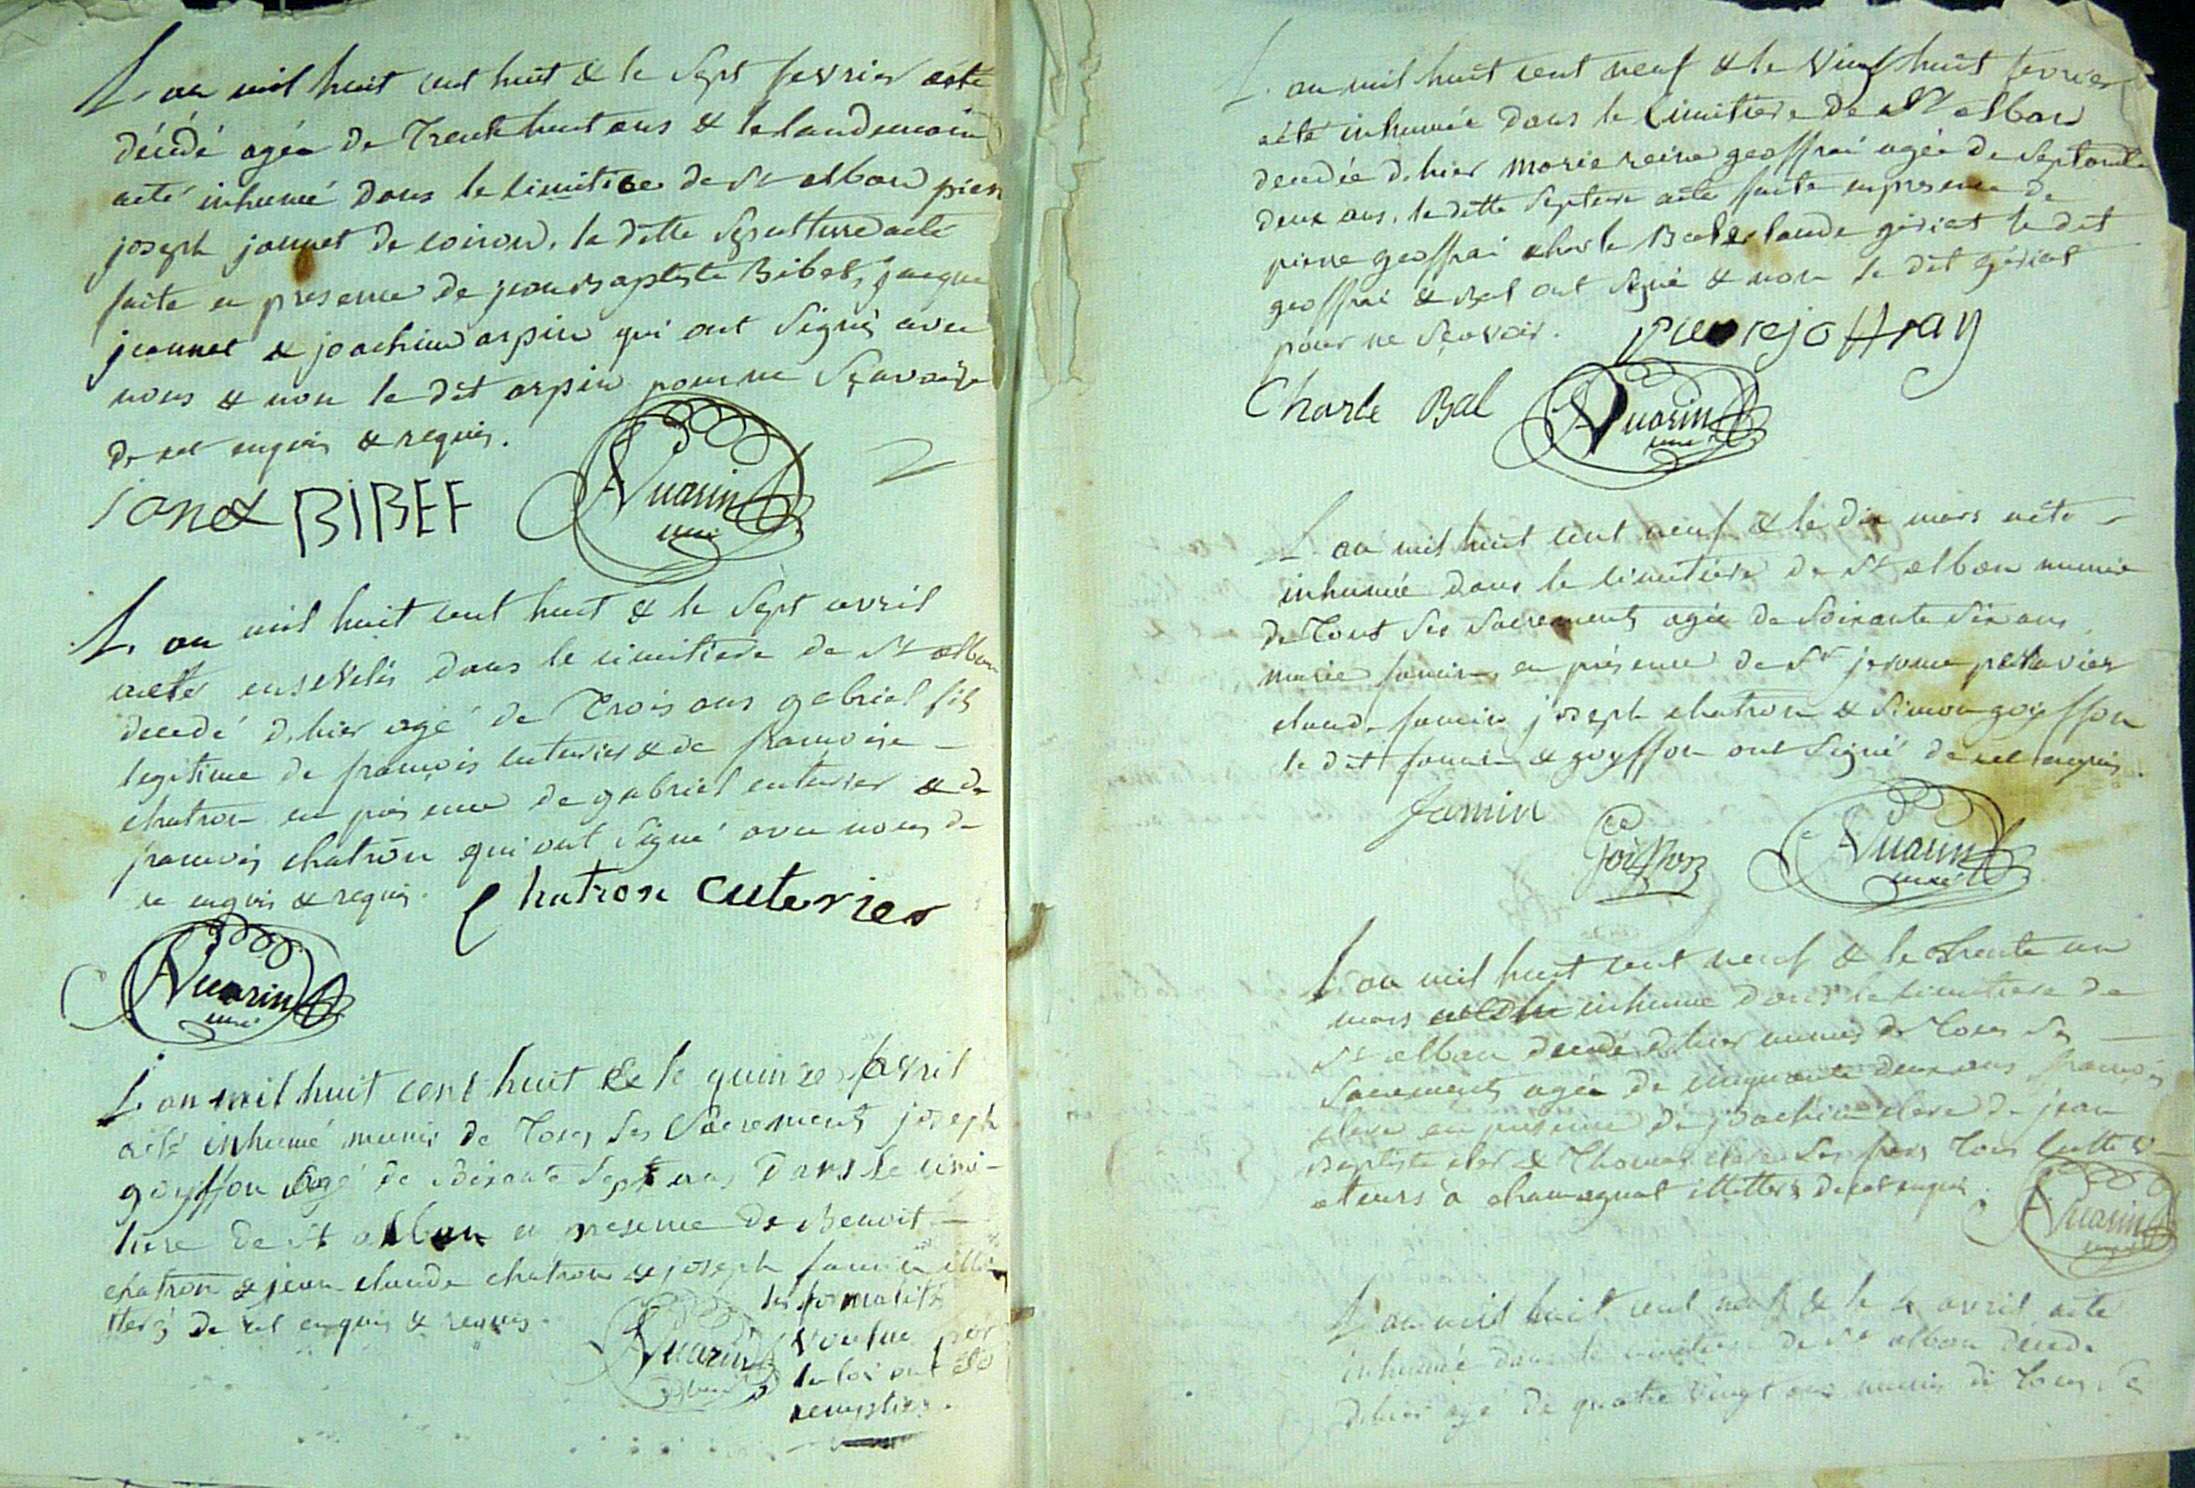 L'an mil huit cent huit & le sept fevrier aeté
décédé agée de Trente huit ans & le landemain
aeté inhumé dans le cimitiere de St alban pierre
joseph jannet de coiron, la ditte sepulture aeté
faite en presence de jean Baptiste Bibet, jacque
jeannet & joachim arpin qui ont signés avec
nous & non le dit arpin pour ne sçavoir
de cel enquis & requis.
janet BIBEF Vuarin curé
L'an mil huit cent huit & le sept avril
aeté ensevelis dans le cimitiere de St alban
decedé d'hier agé de Trois ans gabriel fils
legitime de françois cuterier & de françoise
chatron en présence de gabriel cuterier & de
françois chatron qui ont signé avec nous de
ce enquis & requis. Chatron cuterier
Vuarin curé
L'an mil huit cent huit & le quinze avril
aeté inhumé munis de Tous ses Sacrements joseph
goyffon agé de soixante sept ans, Dans le cimi-
tiere de St alban en presence de Benoit
chatron & jean claude chatron & joseph famin illi-
terés de cel enquis & requis.
les formalités
Vuarin curé voulue par
la loi ont été
remplies.
L'an mil huit cent neuf & le vint huit fevrier
aété inhumée dans le Cimitière de St alban
decedée d'hier marie reine geoffrai agée de septante
deux ans, la ditte septure aété faite en presence de
pierre geoffrai charle Bal & claude gériat le dit
geoffrai & Bal ont signé & non le dit gériat
pour ne sçavoir. pierre joffray
Charle Bal Vuarin curé
L'an mil huit cent neuf & le dix mars aété
inhumée dans le cimitière de St alban munie
de Tout ses sacrements agée de soixante six ans
marie famin, en présence de Sr jerome pettavier
claude famin joseph chatron & simon goyffon
le dit famin & goyffon ont signé de cel enquis.
famin Goiffon Vuarin curé
L'an mil huit cent neuf & le Trente un
mars inhumé dans le cimitiere de
St alban decedé d'hier munis de Tous ses
Sacrements agée de cinquante deux ans françois
clere en presence de joachim clere de jean
Baptiste cler & Thomas clere ses Tous cultiv-
ateurs a chamagnat illitterés de cel enquis.
Vuarin curé
L'an mil huit cent neuf & le 4 avril aété
inhumée dans le cimitiere de St alban decedé
d'hier agé de quatre vingt ans munis de Tous ses